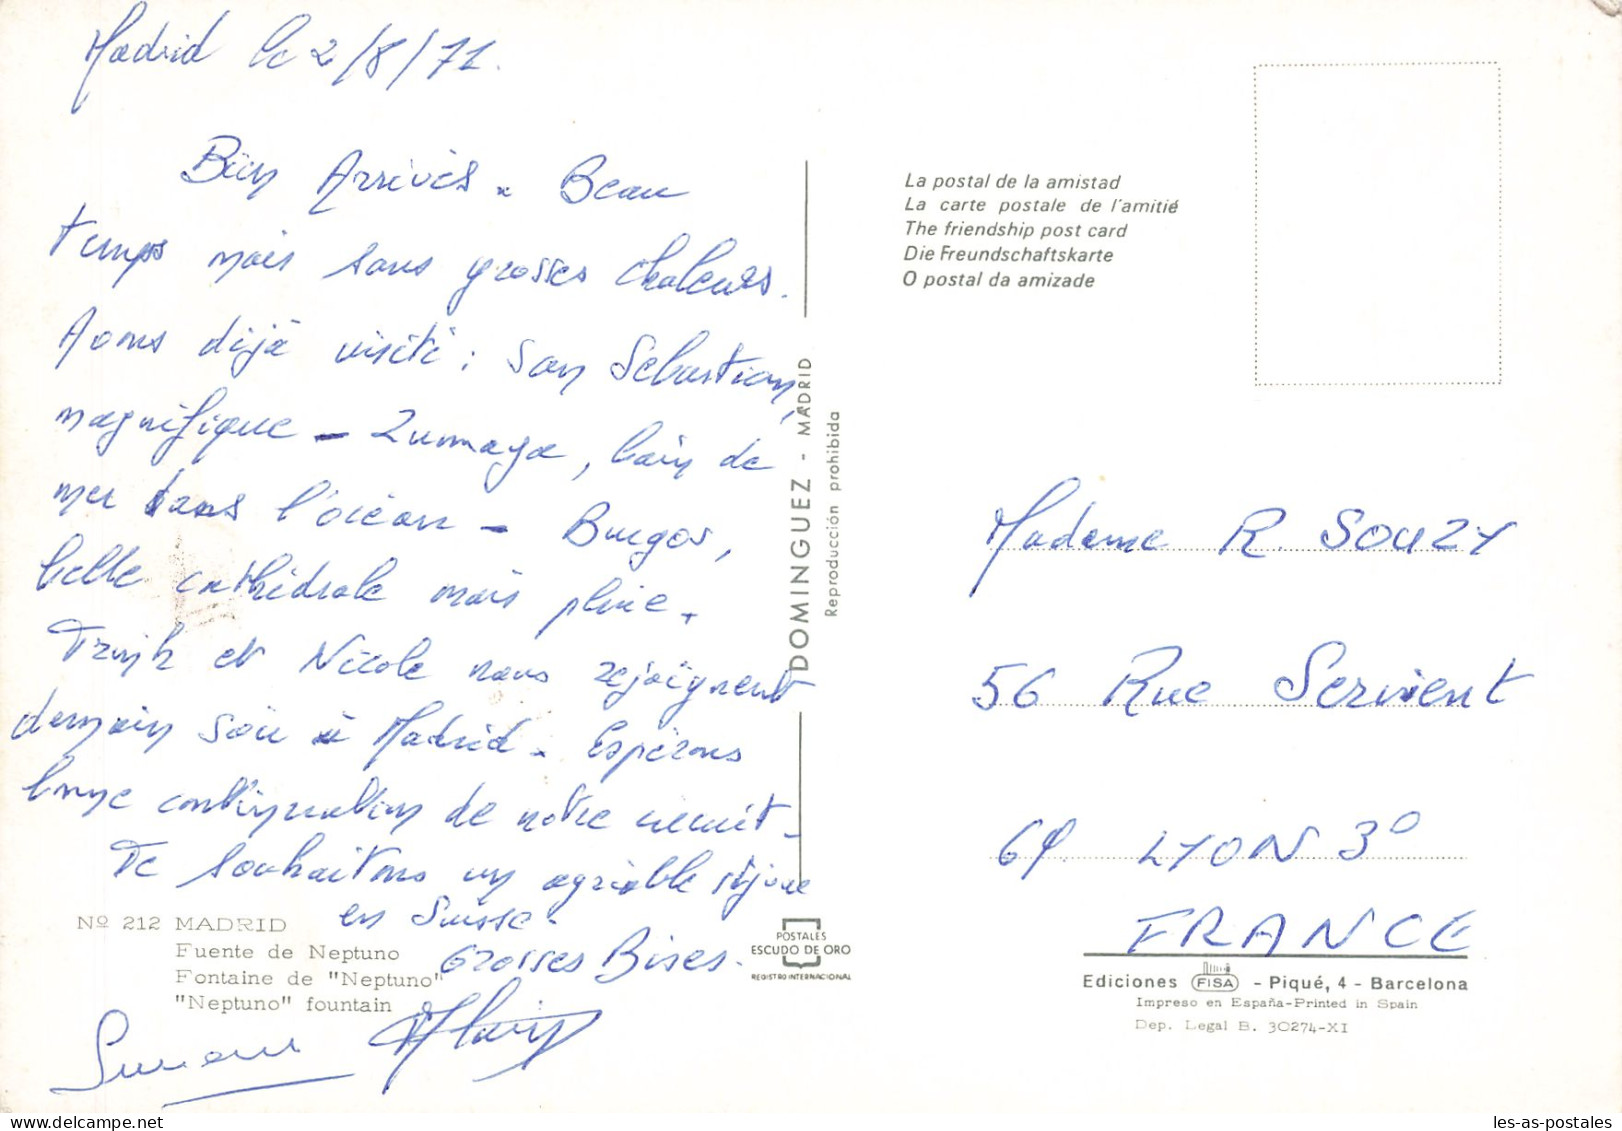 Madrid le 2/8/71.
Bien Arrivés. Beau
temps mais sans grosses chaleurs.
Avons déjà visité : San Sebastian,
magnifique - Zumaya, bain de
mer dans l'océan - Burgos,
belle cathédrale mais pluie.
et Nicole nous rejoignent
demain soir à Madrid. Espérons
bonne continuation de notre circuit -
Te souhaitons un agréable séjour
en Suisse.
Grosses Bises.
Nº 212 MADRID
Fuente de Neptuno
Fontaine de "Neptuno"
"Neptuno" fountain
DOMINGUEZ - MADRID
Reproducción prohibida
POSTALES
ESCUDO DE ORO
REGISTRO INTERNACIONAL
La postal de la amistad
La carte postale de l'amitié
The friendship post card
Die Freundschaftskarte
O postal da amizade
Madame R. SOUZY
56 Rue Servient
69 LYON 3º
FRANCE
Ediciones FISA - Piqué, 4 - Barcelona
Impreso en España-Printed in Spain
Dep. Legal B. 30274-XI
les-as-postales